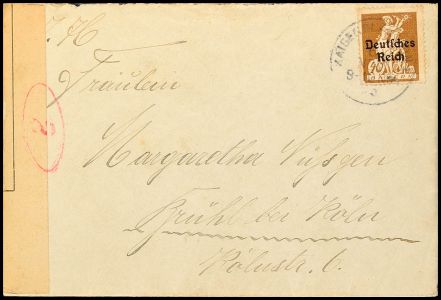 Deutsches
Reich
Fräulein
Margaretha Nüssgen
Brühl bei Köln
Kölnstr. 6.